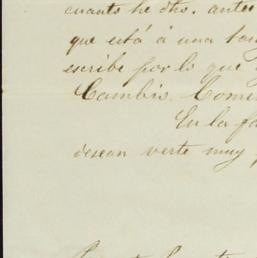 cuanto he dho. antes
que está á una
escribe por lo que
Cambio. Comer
En la fa
desean verte muy